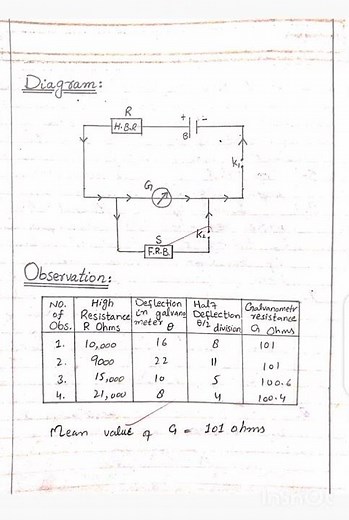 Diagram:
R
H.B.R
+ -
B
K₁
G
K₂
S
F.R.B.
Observation:
No. of Obs. | High Resistance R Ohms | Deflection in galvanometer θ | Half Deflection θ/2 division | Galvanometr resistance G Ohms
1. | 10,000 | 16 | 8 | 101
2. | 9000 | 22 | 11 | 101
3. | 15,000 | 10 | 5 | 100.6
4. | 21,000 | 8 | 4 | 100.4
Mean value of G = 101 ohms